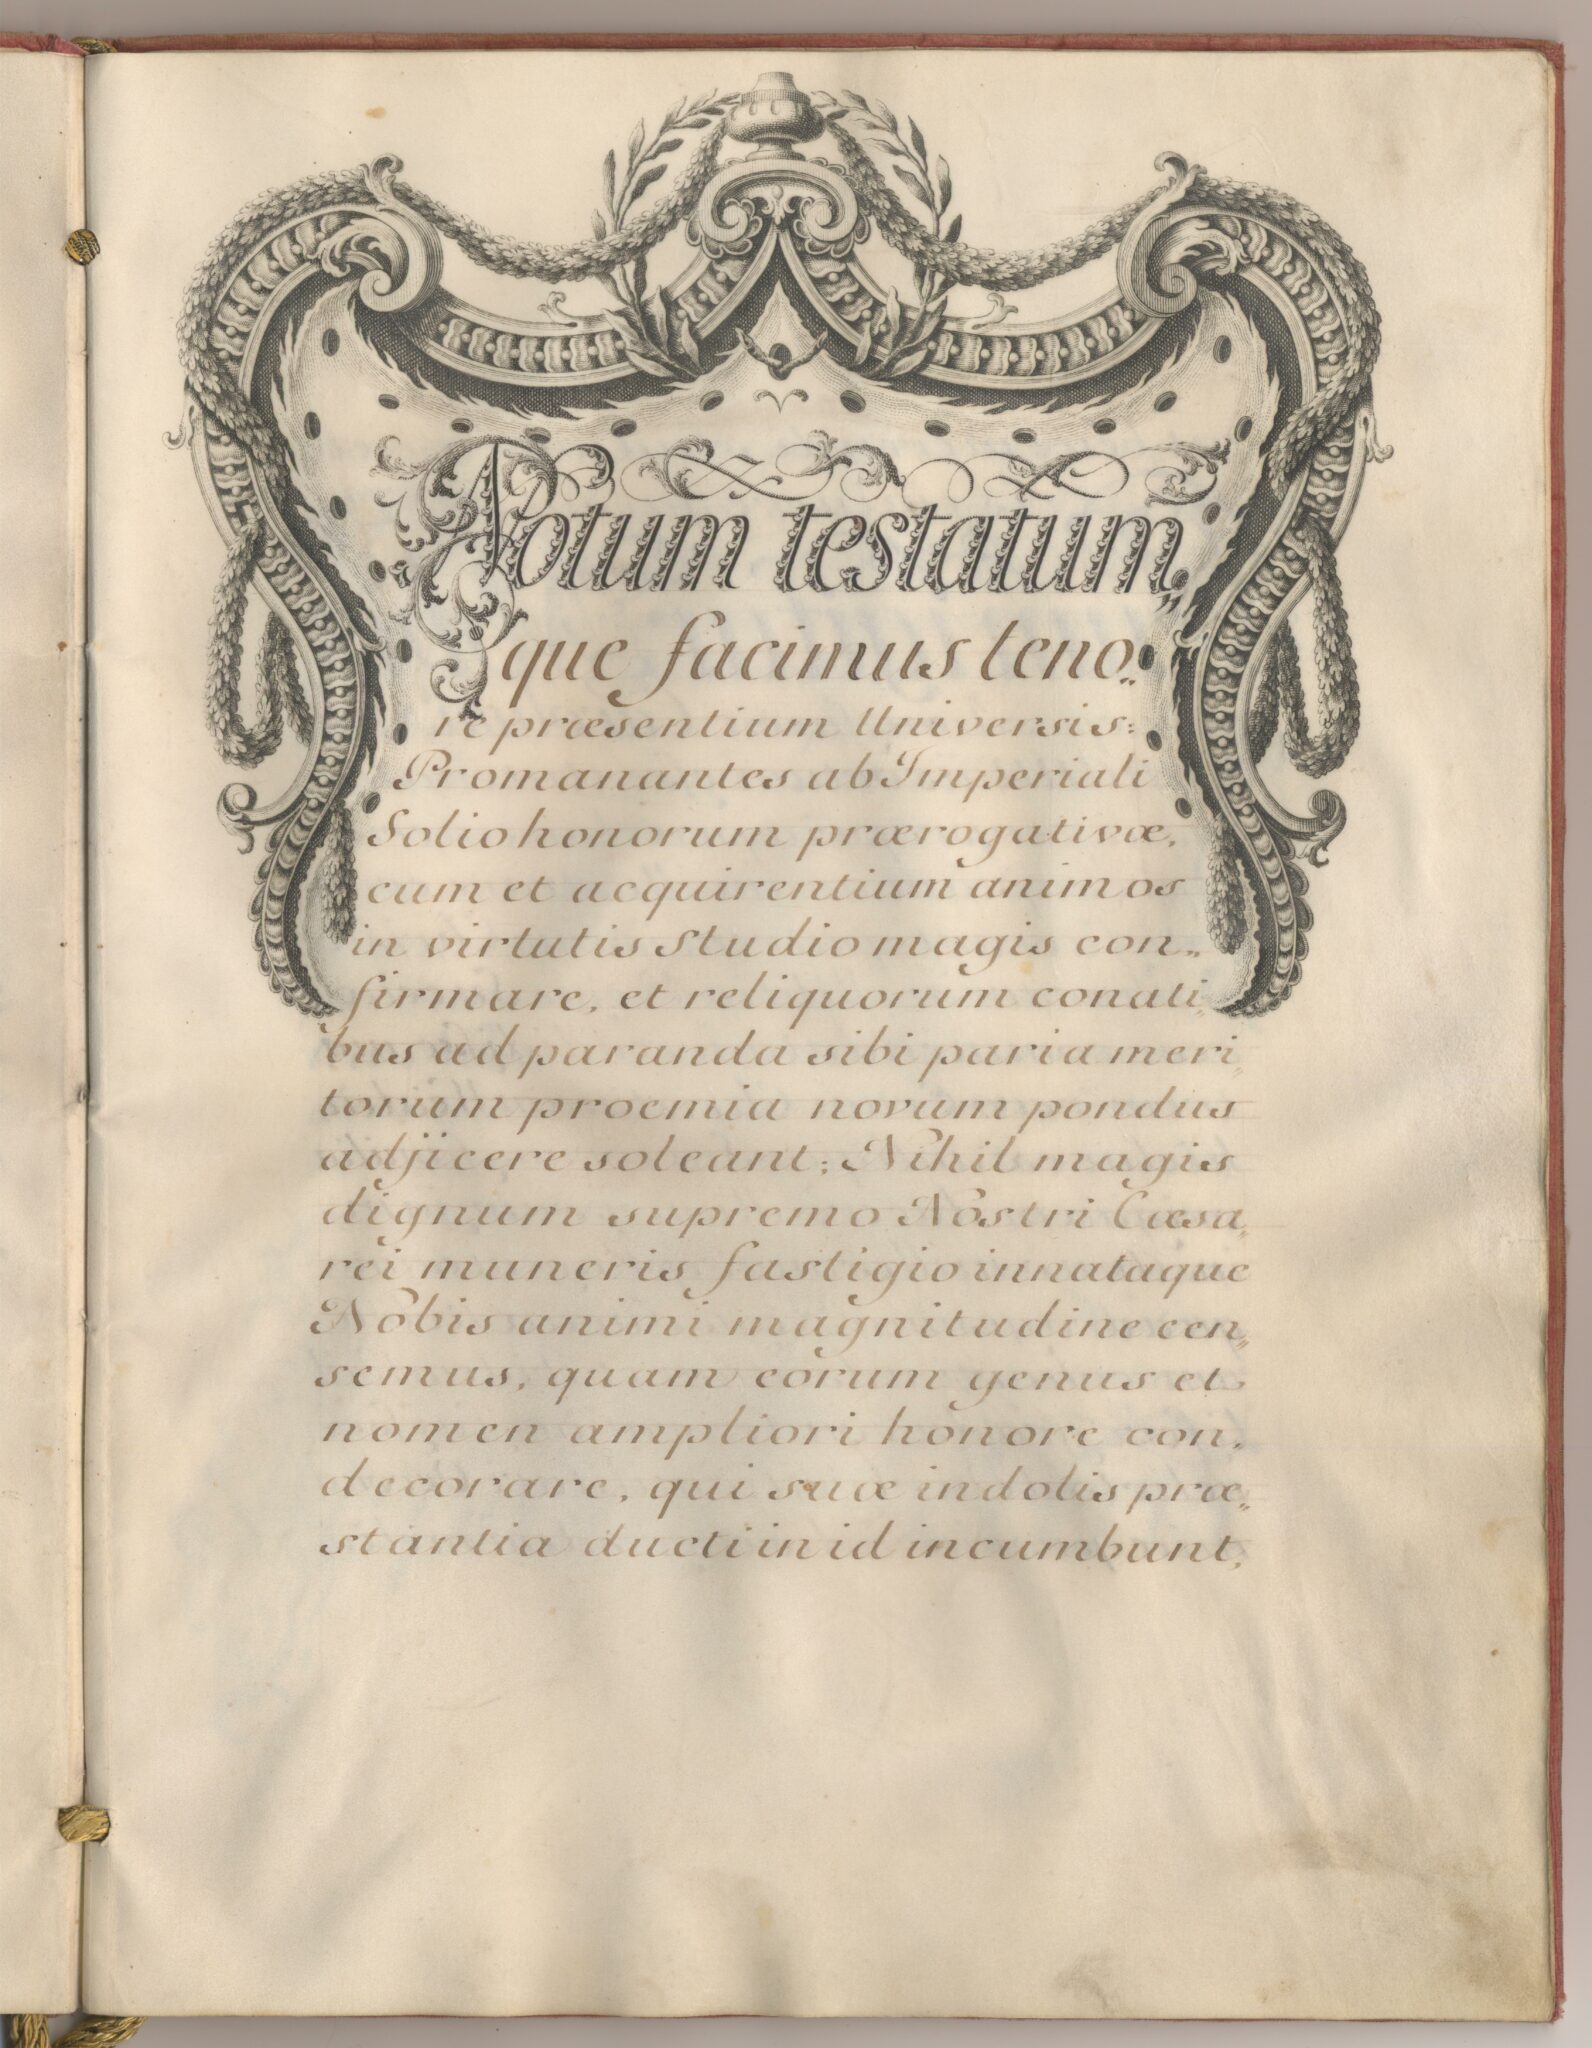 Notum testatum„
que facimus teno„
re præsentium Universis:
Promanantes ab Imperiali
Solio honorum prærogativæ,
cum et acquirentium animos
in virtutis studio magis con„
firmare, et reliquorum conati„
bus ad paranda sibi paria meri„
torum proemia novum pondus
adjicere soleant; Nihil magis
dignum supremo Nostri Cæsa„
rei muneris fastigio innataque
Nobis animi magnitudine cen„
semus, quam eorum genus et
nomen ampliori honore con„
decorare, qui suæ indolis præ„
stantia ducti in id incumbunt,